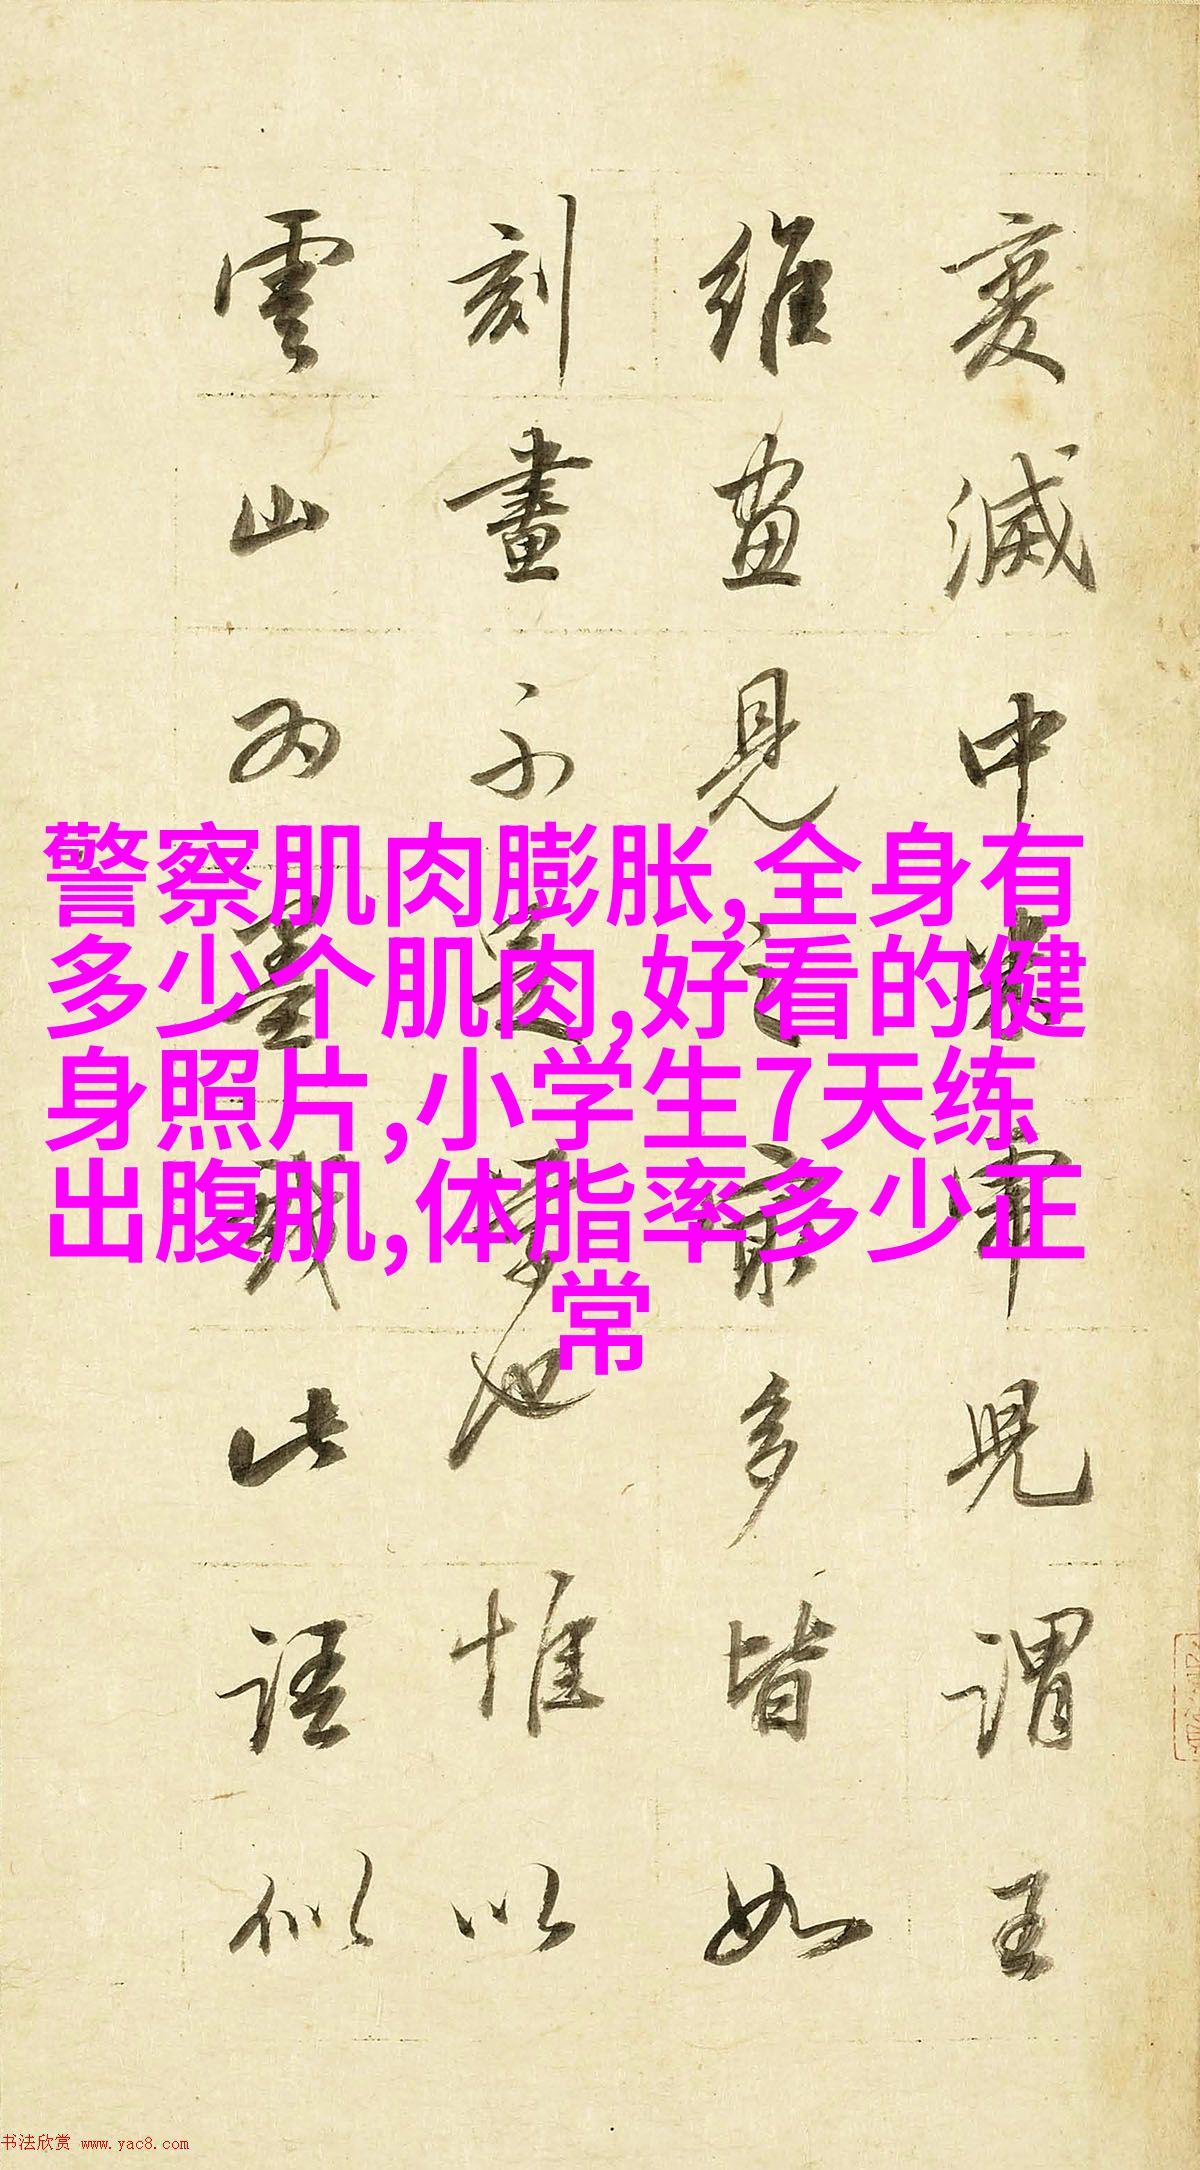 警察肌肉膨胀,全身有
多少个肌肉,好看的健
身照片,小学生7天练
出腹肌,体脂率多少正
常
變滅中見謂王
維畫見之最多皆如
刻畫不足學也惟以
雲山為墨戲此語似
书法欣赏 www.yac8.com